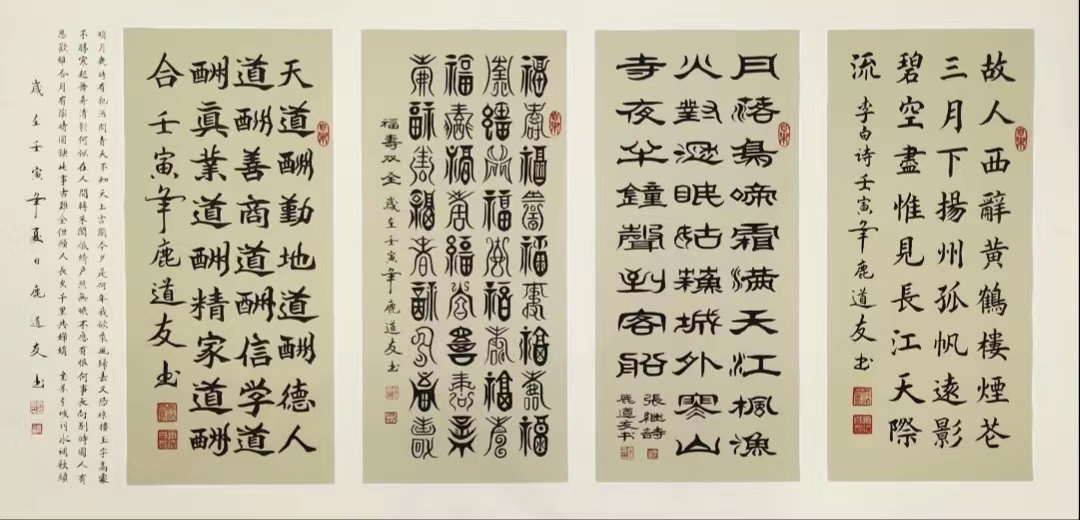 故人西辭黃鶴樓煙花
三月下揚州孤帆遠影
碧空盡惟見長江天際
流 李白诗壬寅年鹿道友书
月落烏啼霜满天江楓漁
火對愁眠姑蘇城外寒山
寺夜半鐘聲到客船
張継詩
鹿道友书
福壽福壽福壽福壽福
壽福壽福壽福壽福壽
福壽福壽福壽福壽福
壽福壽福壽福壽福壽
福壽双全 歲在壬寅年鹿道友书
天道酬勤地道酬德人
道酬善商道酬信学道
酬真業道酬精家道酬
合壬寅年鹿道友书
明月幾時有把酒問青天不知天上宫闕今夕是何年我欲乘風歸去又恐瓊樓玉宇高處
不勝寒起舞弄清影何似在人間轉朱閣低綺户照無眠不應有恨何事長向别時圓人有
悲歡離合月有陰晴圓缺此事古難全但願人長久千里共嬋娟 水调歌頭
歲在壬寅年夏日鹿道友书